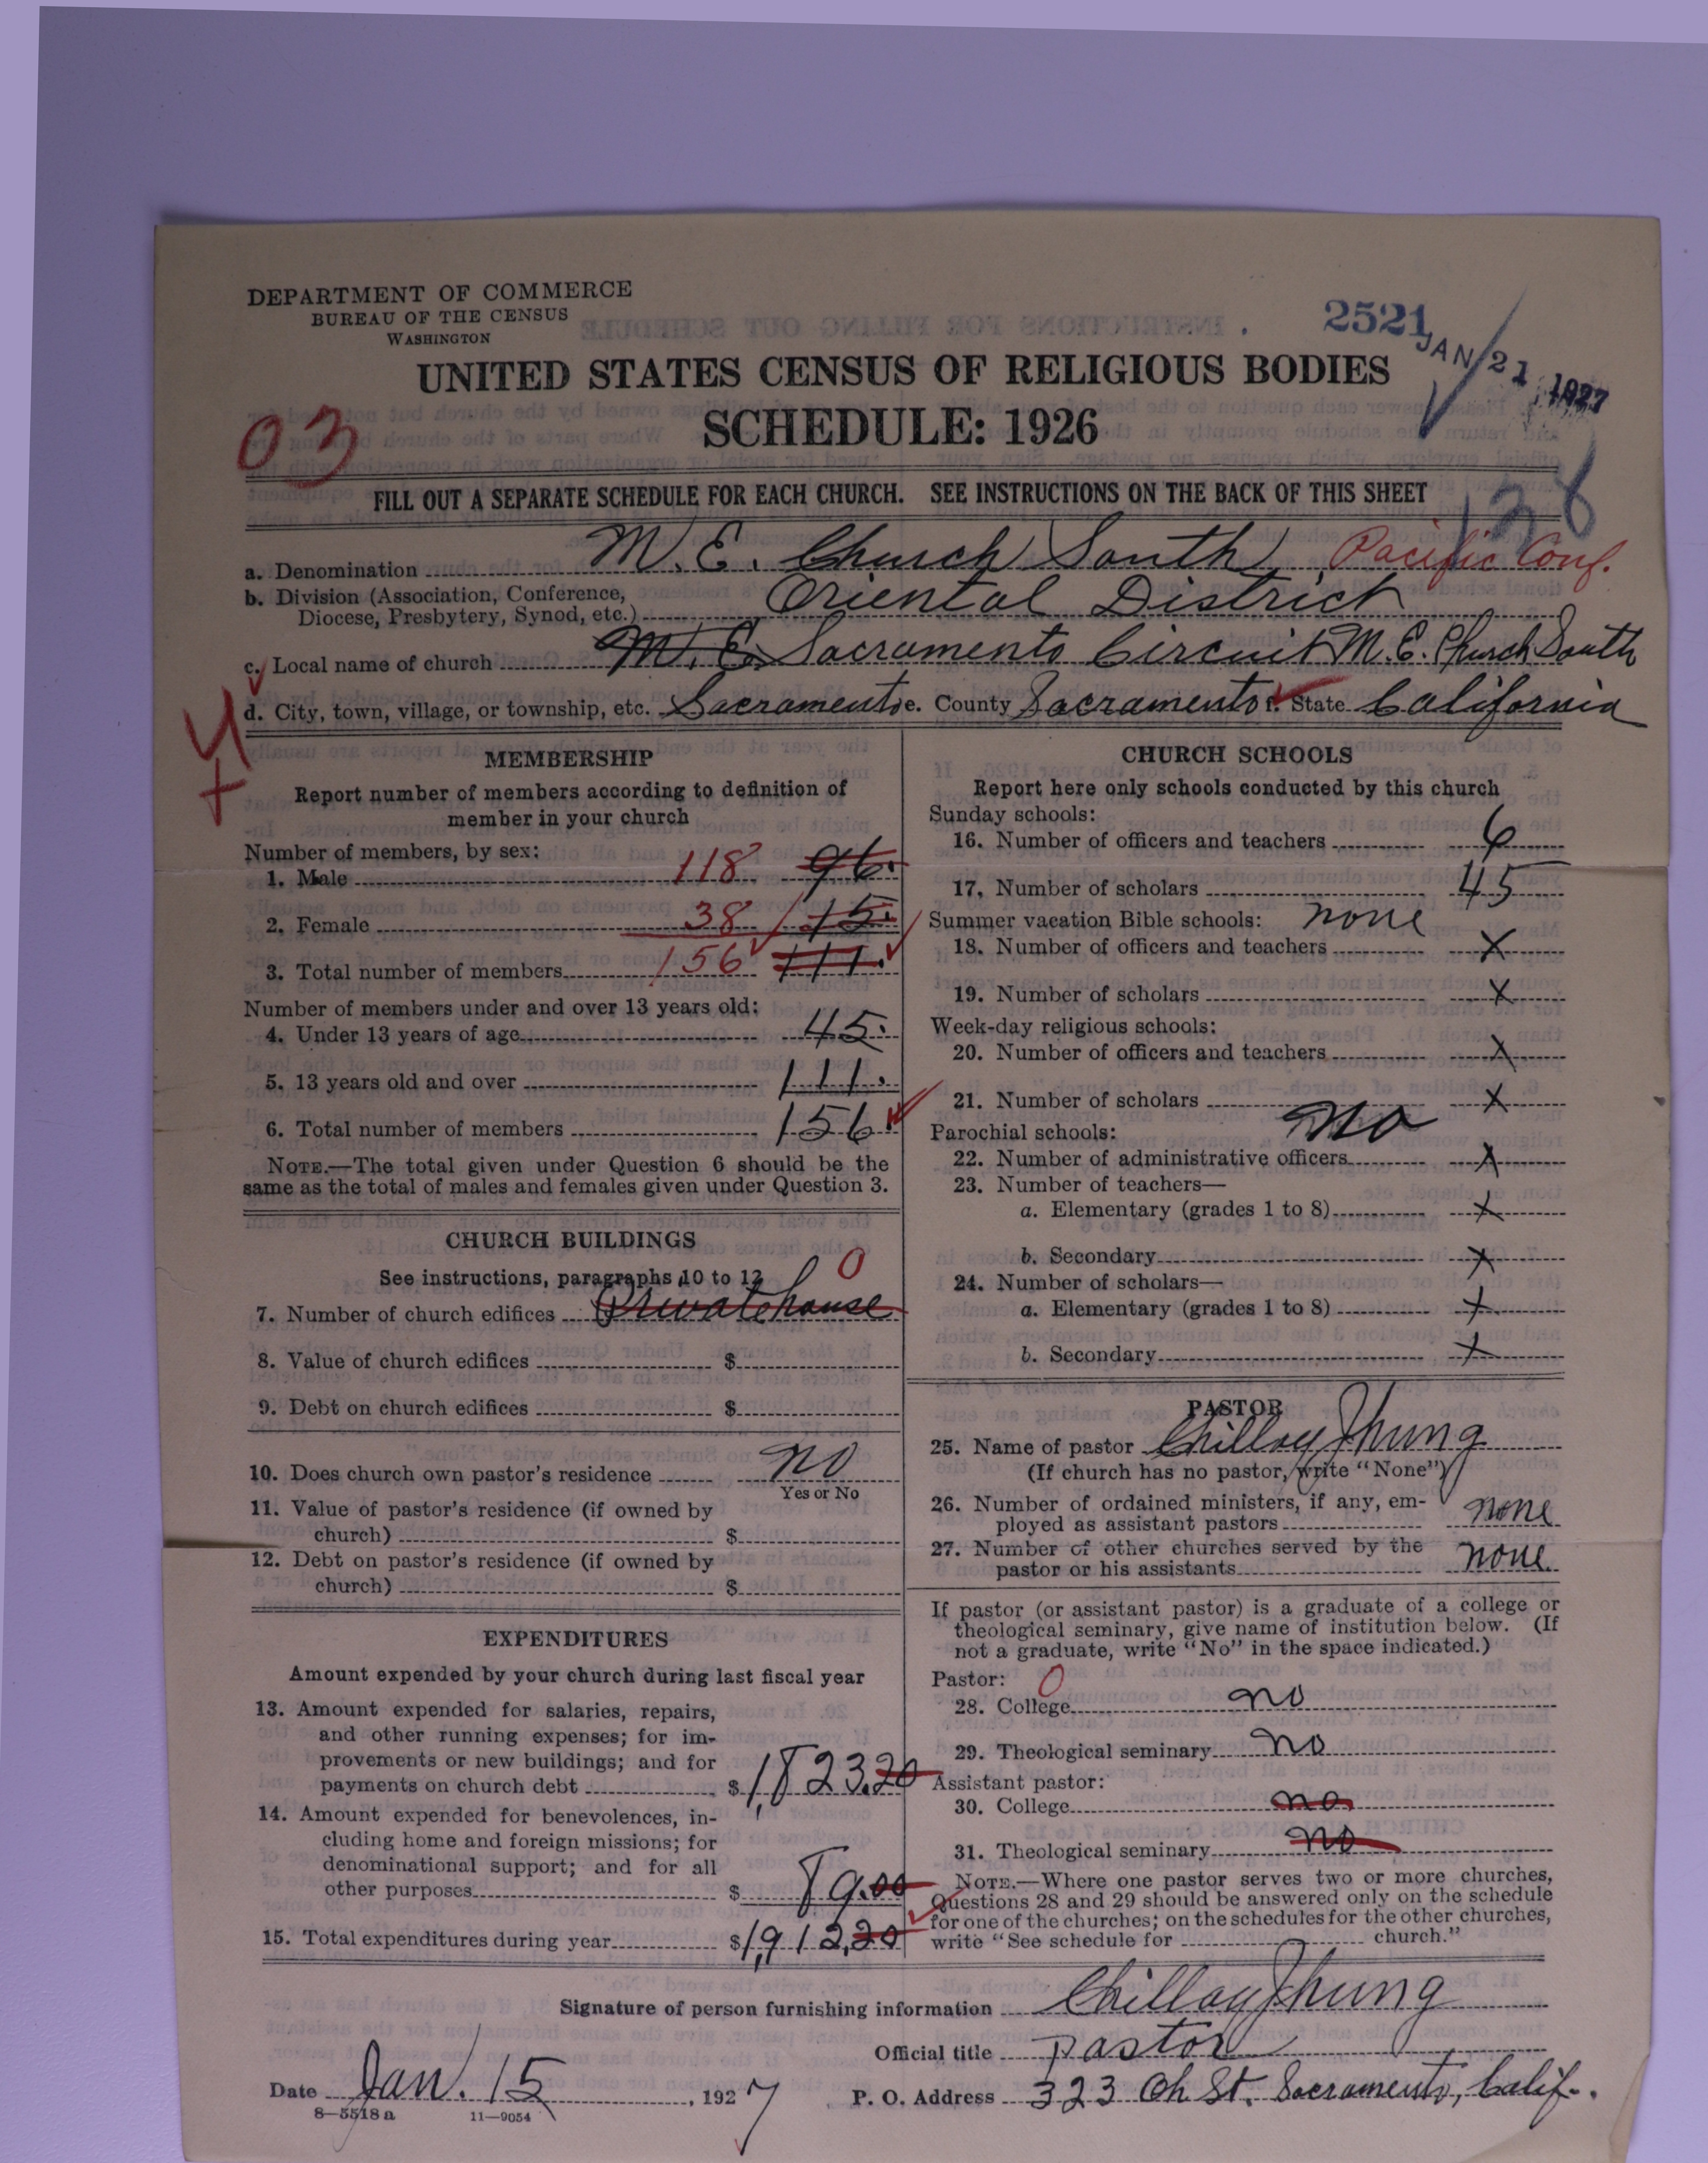 DEPARTMENT OF COMMERCE
BUREAU OF THE CENSUS
WASHINGTON
2521
JAN 21 1927
UNITED STATES CENSUS OF RELIGIOUS BODIES
SCHEDULE: 1926
03
FILL OUT A SEPARATE SCHEDULE FOR EACH CHURCH. SEE INSTRUCTIONS ON THE BACK OF THIS SHEET
a. Denomination M. E. Church South, Pacific Conf.
b. Division (Association, Conference,
Diocese, Presbytery, Synod, etc.) Oriental District
c. Local name of church M. E. Sacramento Circuit M. E. Church South
d. City, town, village, or township, etc. Sacramento e. County Sacramento f. State California
MEMBERSHIP
Report number of members according to definition of
member in your church
Number of members, by sex:
1. Male 118 96.
2. Female 38 15.
3. Total number of members 156 111.
Number of members under and over 13 years old:
4. Under 13 years of age 45.
5. 13 years old and over 111.
6. Total number of members 156.
NOTE.—The total given under Question 6 should be the
same as the total of males and females given under Question 3.
CHURCH BUILDINGS
See instructions, paragraphs 10 to 12
0
7. Number of church edifices Private house
8. Value of church edifices $
9. Debt on church edifices $
10. Does church own pastor's residence no
Yes or No
11. Value of pastor's residence (if owned by
church) $
12. Debt on pastor's residence (if owned by
church) $
EXPENDITURES
Amount expended by your church during last fiscal year
13. Amount expended for salaries, repairs,
and other running expenses; for im-
provements or new buildings; and for
payments on church debt $1,823.20
14. Amount expended for benevolences, in-
cluding home and foreign missions; for
denominational support; and for all
other purposes $ 89.00
15. Total expenditures during year $1,912.20
CHURCH SCHOOLS
Report here only schools conducted by this church
Sunday schools:
16. Number of officers and teachers 6
17. Number of scholars 45
Summer vacation Bible schools: none
18. Number of officers and teachers X
19. Number of scholars X
Week-day religious schools:
20. Number of officers and teachers X
21. Number of scholars X
Parochial schools: no
22. Number of administrative officers X
23. Number of teachers—
a. Elementary (grades 1 to 8) X
b. Secondary X
24. Number of scholars—
a. Elementary (grades 1 to 8) X
b. Secondary X
PASTOR
25. Name of pastor Chilloy Jhung
(If church has no pastor, write "None")
26. Number of ordained ministers, if any, em-
ployed as assistant pastors none
27. Number of other churches served by the
pastor or his assistants none.
If pastor (or assistant pastor) is a graduate of a college or
theological seminary, give name of institution below. (If
not a graduate, write "No" in the space indicated.)
Pastor: 0
28. College no
29. Theological seminary no
Assistant pastor:
30. College no
31. Theological seminary no
NOTE.—Where one pastor serves two or more churches,
Questions 28 and 29 should be answered only on the schedule
for one of the churches; on the schedules for the other churches,
write "See schedule for church."
Signature of person furnishing information Chilloy Jhung
Official title pastor
Date Jan. 15, 1927 P. O. Address 323 Oh St. Sacramento, Calif.
8—5518 a 11—9054